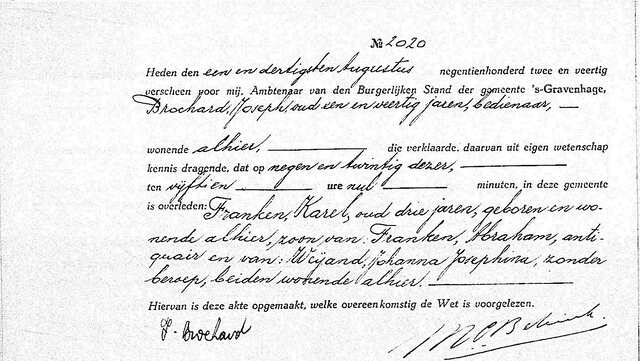 № 2020
Heden den een en dertigsten Augustus negentienhonderd twee en veertig
verscheen voor mij, Ambtenaar van den Burgerlijken Stand der gemeente 's-Gravenhage,
Brochard, Joseph, oud een en veertig jaren, bedienaar,
wonende alhier, die verklaarde, daarvan uit eigen wetenschap
kennis dragende, dat op negen en twintig dezer,
ten vijftien ure nul minuten, in deze gemeente
is overleden: Franken, Karel, oud drie jaren, geboren en wo-
nende alhier, zoon van: Franken, Abraham, anti-
quair en van: Weijand, Johanna Josephina, zonder
beroep, beiden wonende alhier.
Hiervan is deze akte opgemaakt, welke overeenkomstig de Wet is voorgelezen.
J. Brochard